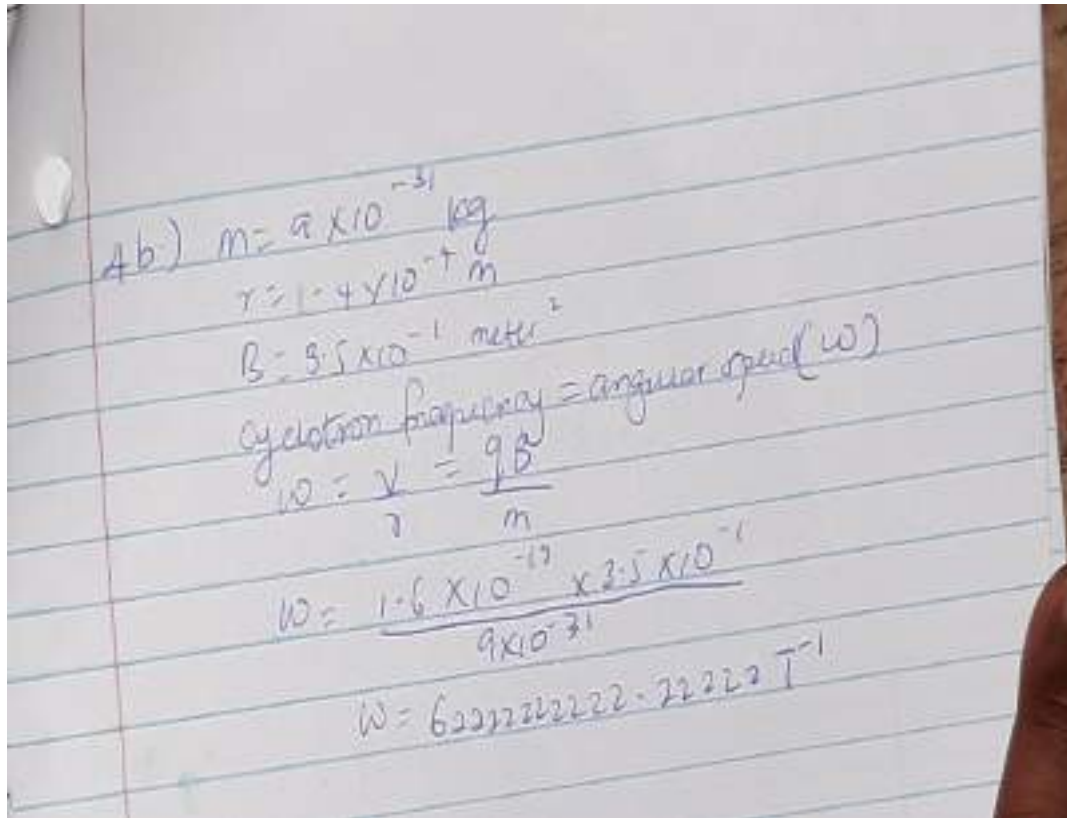 4b.) m = 9 x 10⁻³¹ kg
r = 1.4 x 10⁻⁷ m
B = 3.5 x 10⁻¹ meter²
Cyclotron frequency = angular speed (ω)
ω = v/r = qB/m
ω = 1.6 x 10⁻¹⁹ x 3.5 x 10⁻¹ / 9x10⁻³¹
ω = 62222222222.22222 T⁻¹